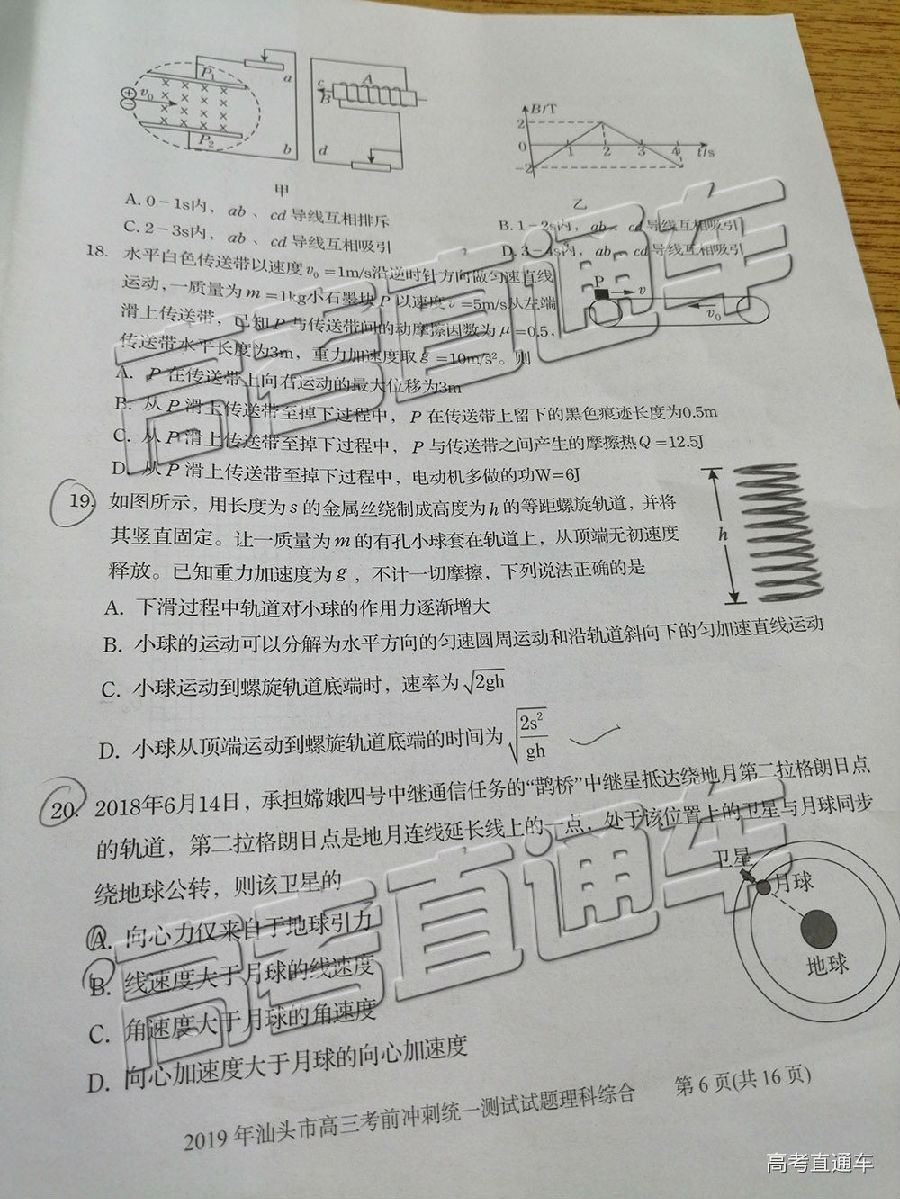 P₁
a
v₀
P₂
b
c
A
B
d
甲
B/T
2
0
1
2
3
4
t/s
-2
乙
A. 0-1s内，ab、cd导线互相排斥
B. 1-2s内，ab、cd导线互相吸引
C. 2-3s内，ab、cd导线互相吸引
D. 3-4s内，ab、cd导线互相吸引
18. 水平白色传送带以速度v₀=1m/s沿逆时针方向做匀速直线
运动，一质量为m=1kg小石墨块P以速度v=5m/s从左端
滑上传送带，已知P与传送带间的动摩擦因数为μ=0.5，
传送带水平长度为3m，重力加速度取g=10m/s²。则
P
v
v₀
A. P在传送带上向右运动的最大位移为3m
B. 从P滑上传送带至掉下过程中，P在传送带上留下的黑色痕迹长度为0.5m
C. 从P滑上传送带至掉下过程中，P与传送带之间产生的摩擦热Q=12.5J
D. 从P滑上传送带至掉下过程中，电动机多做的功W=6J
19. 如图所示，用长度为s的金属丝绕制成高度为h的等距螺旋轨道，并将
其竖直固定。让一质量为m的有孔小球套在轨道上，从顶端无初速度
释放。已知重力加速度为g，不计一切摩擦，下列说法正确的是
h
A. 下滑过程中轨道对小球的作用力逐渐增大
B. 小球的运动可以分解为水平方向的匀速圆周运动和沿轨道斜向下的匀加速直线运动
C. 小球运动到螺旋轨道底端时，速率为√2gh
D. 小球从顶端运动到螺旋轨道底端的时间为√(2s²/gh)
20. 2018年6月14日，承担嫦娥四号中继通信任务的“鹊桥”中继星抵达绕地月第二拉格朗日点
的轨道，第二拉格朗日点是地月连线延长线上的一点，处于该位置上的卫星与月球同步
绕地球公转，则该卫星的
卫星
月球
地球
A. 向心力仅来自于地球引力
B. 线速度大于月球的线速度
C. 角速度大于月球的角速度
D. 向心加速度大于月球的向心加速度
2019年汕头市高三考前冲刺统一测试试题理科综合 第6页(共16页)
高考直通车
高考直通车
高考直通车